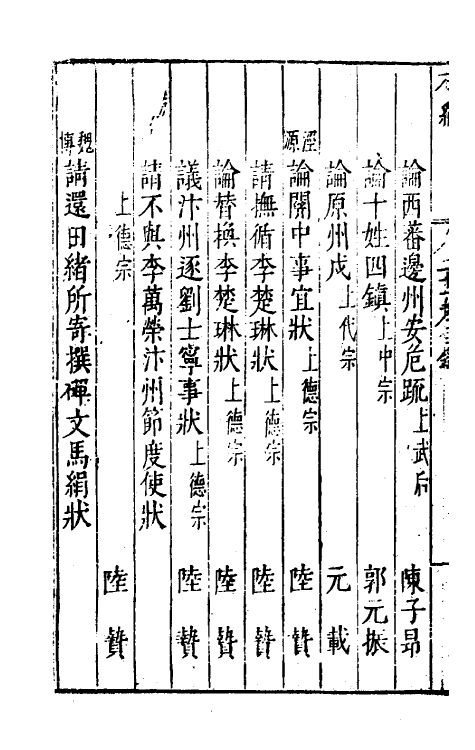 論西蕃邊州安危䟽上武后 陳子昂
論十姓四鎮上中宗 郭元振
論原州戍上代宗 元載
涇源論關中事宜狀上德宗 陸贄
請撫循李楚琳狀上德宗 陸贄
論替換李楚琳狀上德宗 陸贄
議汴州逐劉士寧事狀上德宗 陸贄
請不與李萬榮汴州節度使狀
上德宗 陸贄
魏博請還田緒所寄撰碑文馬絹狀